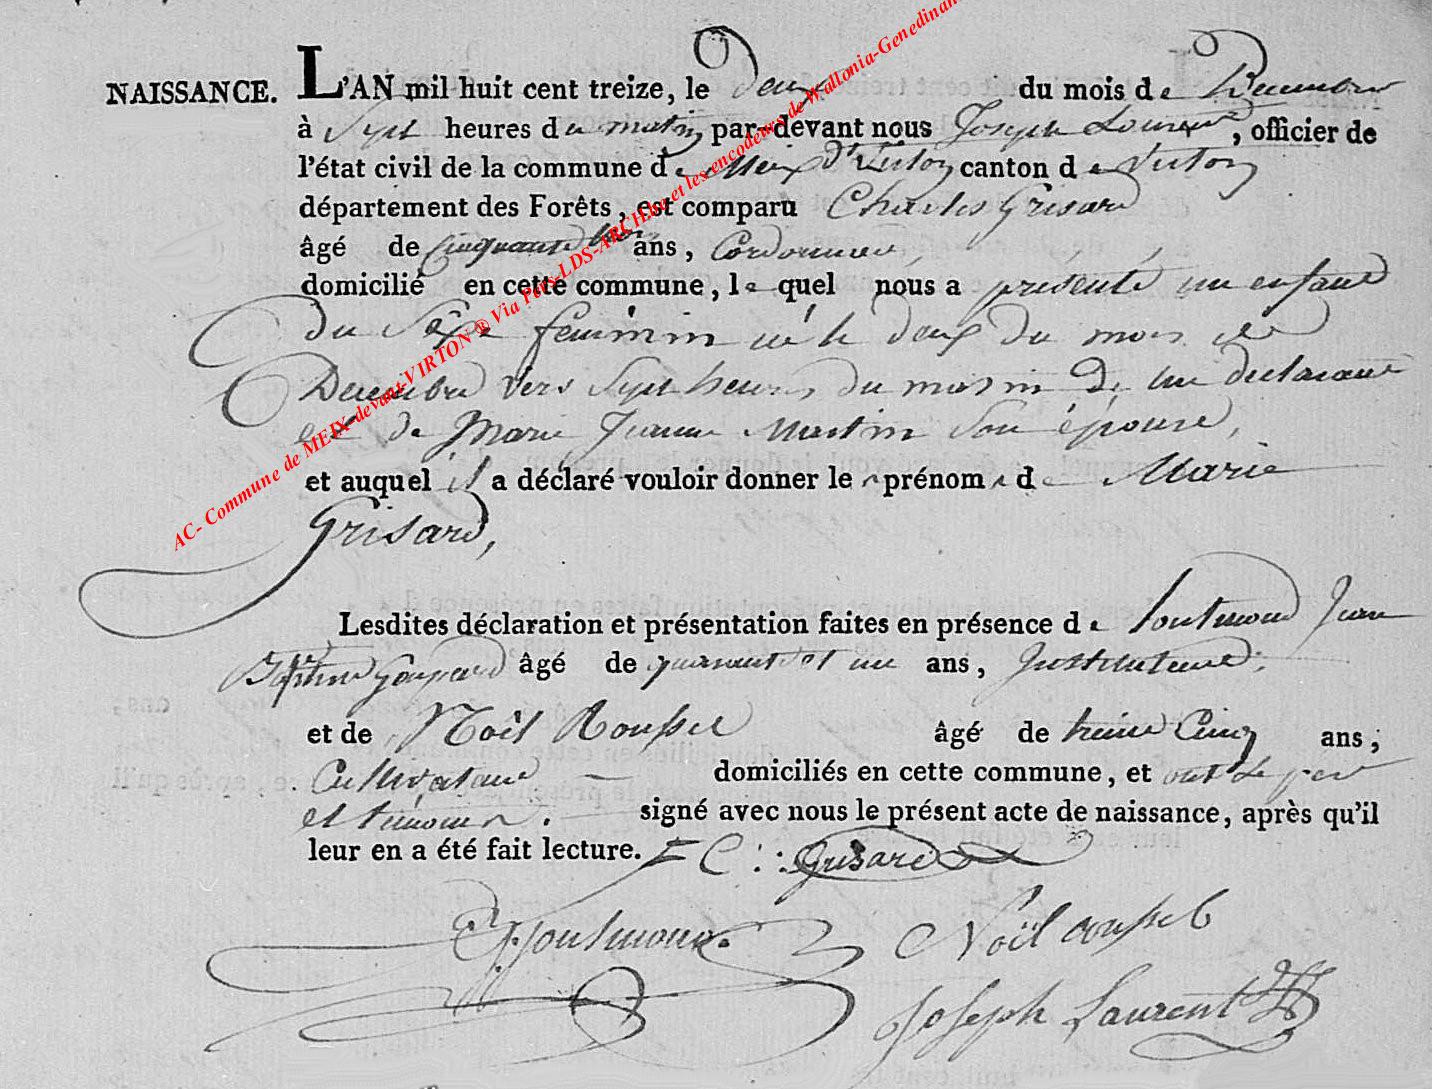 NAISSANCE. L'AN mil huit cent treize, le deux du mois de Decembre
à Sept heures du matin par-devant nous Joseph Laurent, officier de
l'état civil de la commune de Meix d't Virton canton de Virton
département des Forêts, est comparu Charles Grisard
âgé de cinquante trois ans, Cordonnier,
domicilié en cette commune, lequel nous a présenté un enfant
du Sexe feminin né le deux du mois de
Decembre vers Sept heures du matin De lui declarant
et de Marie Jeanne Martin Son épouse,
et auquel il a déclaré vouloir donner le prénom de Marie
Grisard,
Lesdites déclaration et présentation faites en présence de Jean
Baptiste Gaspard âgé de quarante et un ans, Instituteur,
et de Noël Roussel âgé de trente Cinq ans,
Cultivateur domiciliés en cette commune, et ont le pere
et temoins. signé avec nous le présent acte de naissance, après qu'il
leur en a été fait lecture. C: Grisard
Noël roussel
Joseph Laurent
AC- Commune de MEIX-devant-VIRTON ® Via Pers-LDS-ARCH.be et les encodeurs de Wallonia-Genedinant